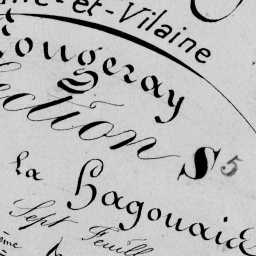 et-Vilaine
ougeray
ection S 5
La Hagouai
Sept Feuill